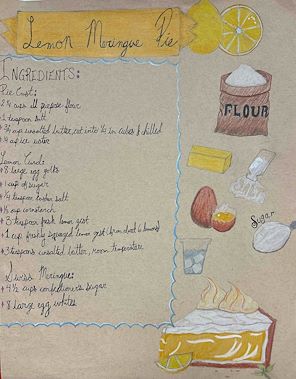 Lemon Meringue Pie
INGREDIENTS:
Pie Crust:
2 ¼ cups all purpose flour
1 teaspoon salt
¾ cup unsalted butter, cut into ½ in cubes & chilled
¼ cup ice water
Lemon Curd:
8 large egg yolks
1 cup of sugar
¼ teaspoon kosher salt
⅓ cup cornstarch
3 teaspoon fresh lemon zest
1 cup freshly squeezed lemon (from about 6 lemons)
3 teaspoons unsalted butter, room temperature
Swiss Meringue:
4 ½ cups confectioner's sugar
8 large egg whites
FLOUR
Sugar